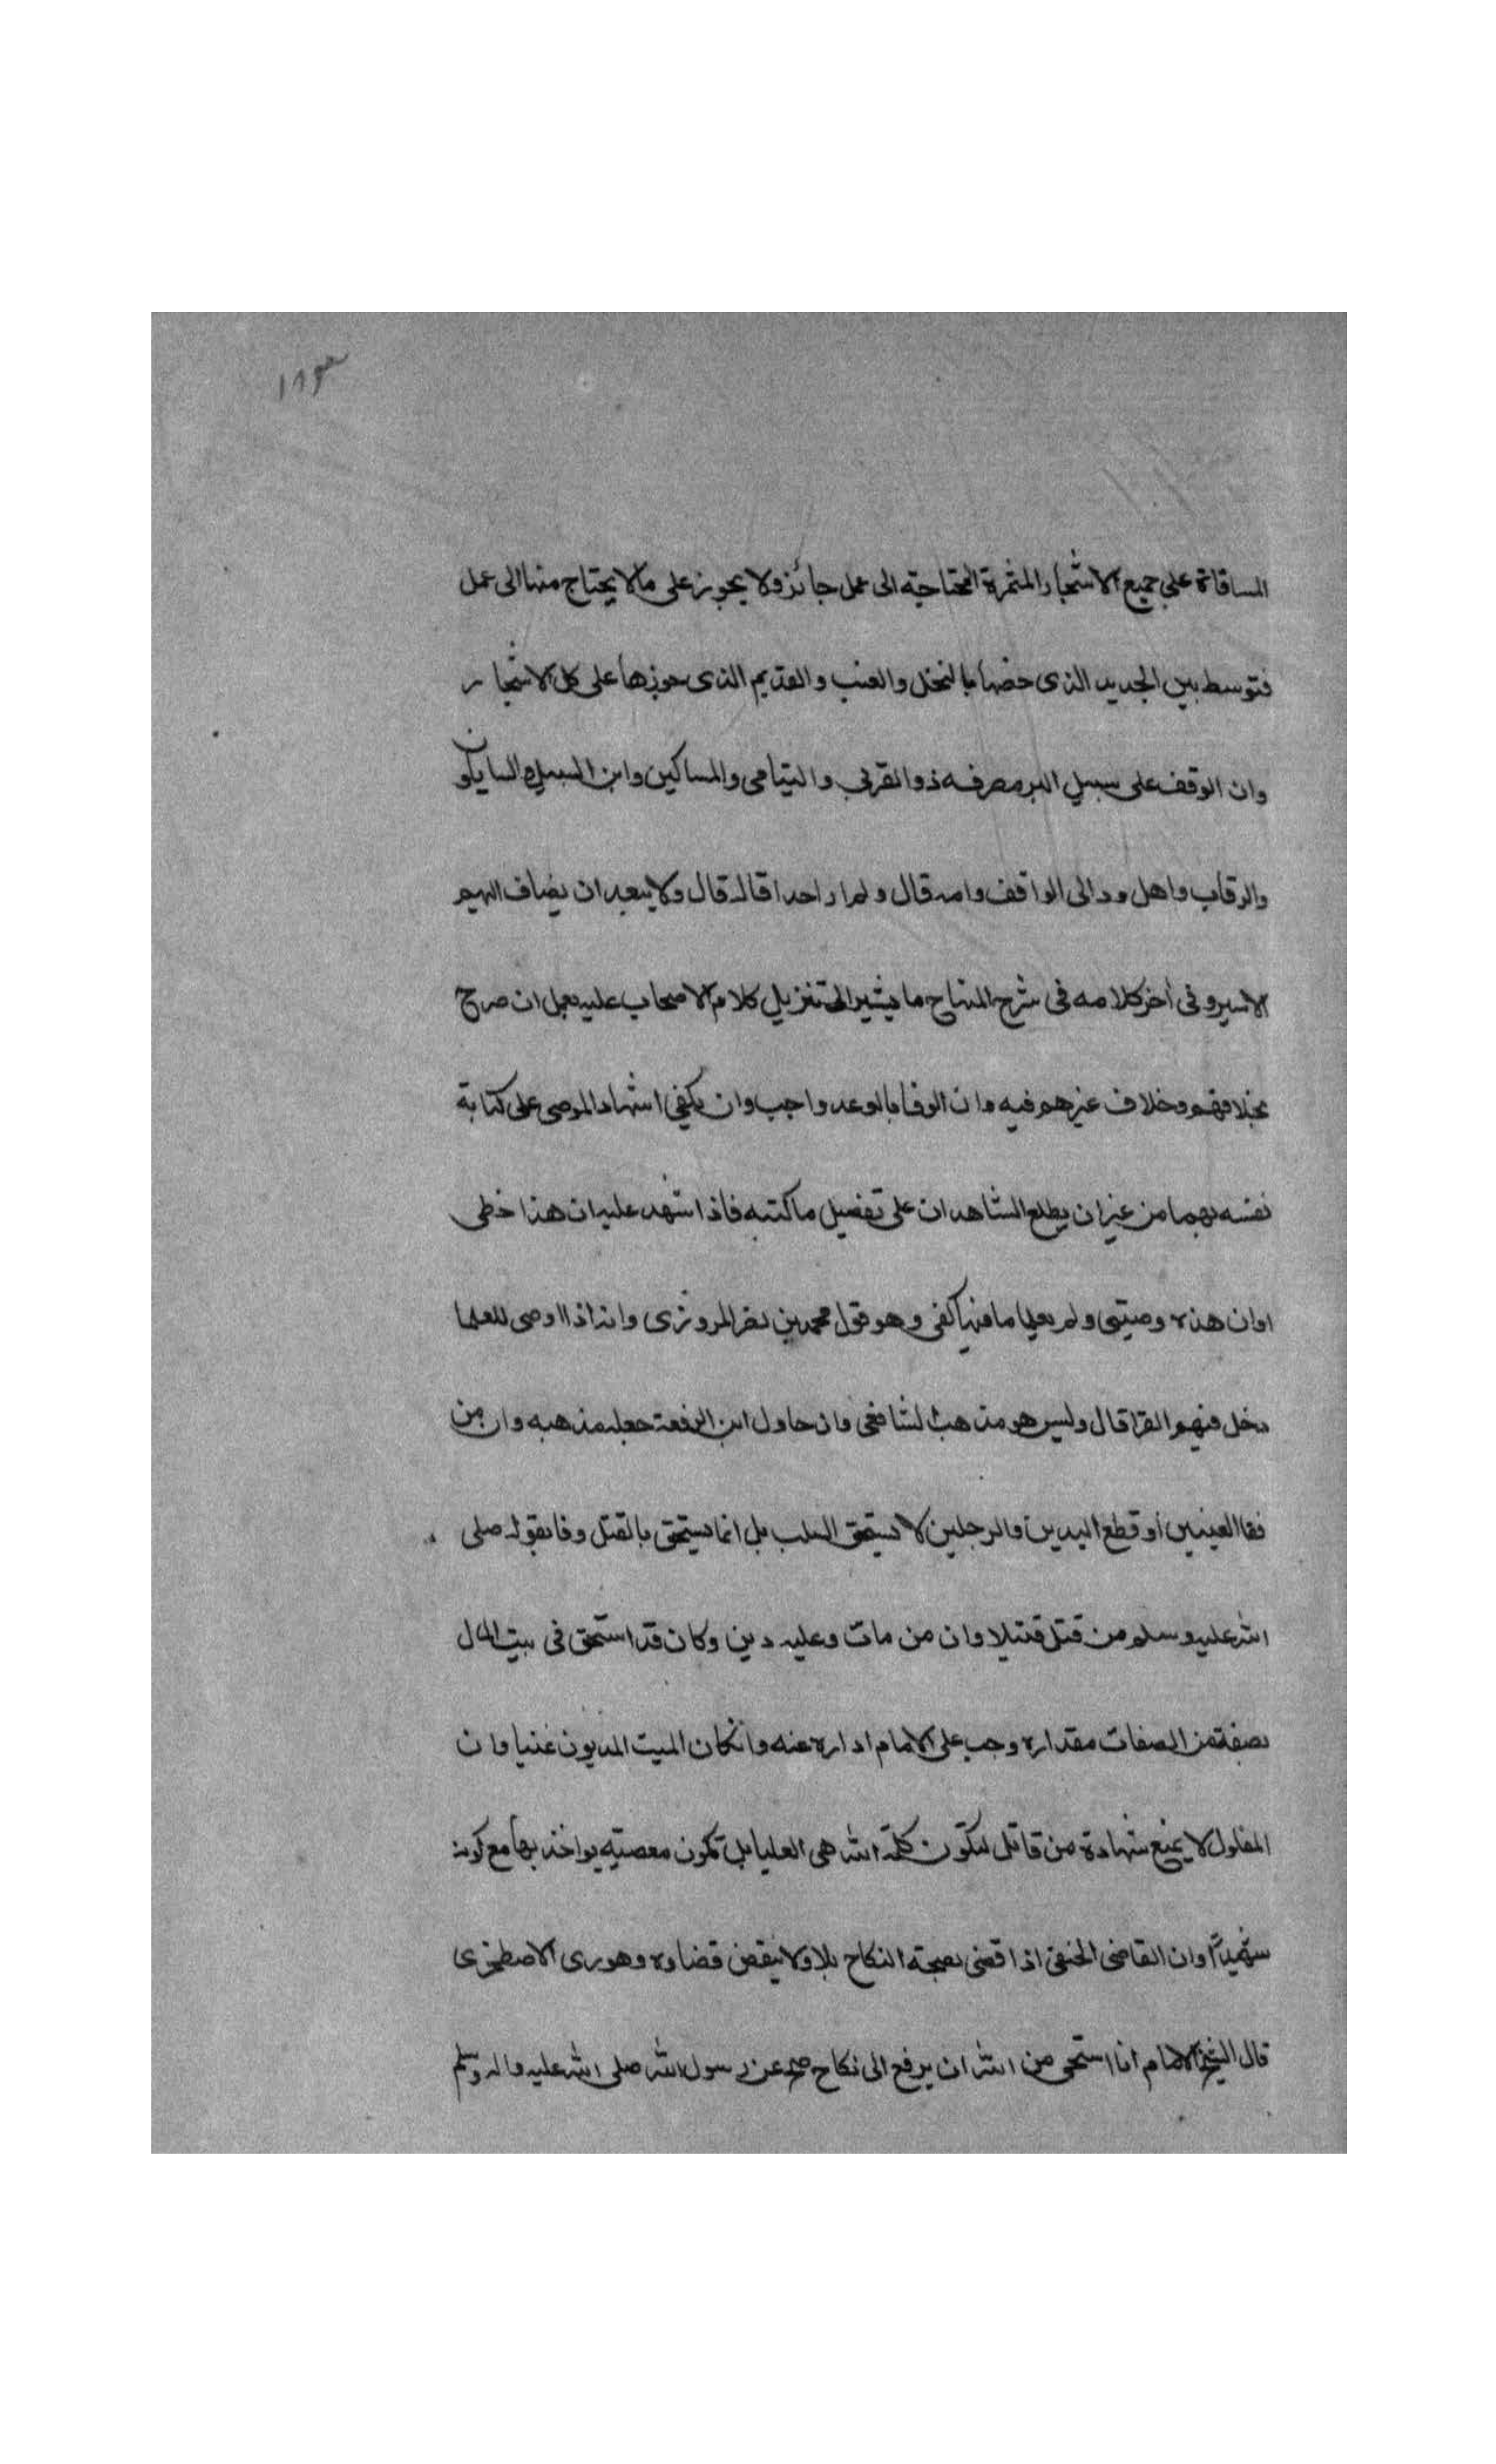 ١٨٣
المساقاة على جميع الاشجار المثمرة المحتاجة الى عمل جائز ولا يجوز على مالا يحتاج منها الى عمل
فتوسط بين الجديد الذى خصها بالنخل والعنب والقديم الذى جوزها على كل الاشجار
وان الوقف على سبيل البر مصرفه ذوا القربى واليتامى والمساكين وابن السبيل والسايلون
والرقاب واهل ود الى الواقف وامه قال ولم ار احدا قاله قال ولا يبعد ان يضاف اليهم
الاسير وفى أخر كلامه فى شرح المنهاج ما يشير الى تنزيل كلام الاصحاب عليه بعد ان صرح
بخلافهم وخلاف غيرهم فيه وان الوفا بالوعد واجب وان يكفى اشهاد الموصى على كتابة
نفسه بهما من غير ان يطلع الشاهدان على تفصيل ما كتبه فاذا اشهد عليه ان هذا خطى
اوان هذه وصيتى ولم يعلما ما فيها كفى وهو قول محمد بن نصر المروزى وانه اذا اوصى للعلما
دخل فيهم القرا قال وليس هو مذهب الشافعى وان حاول ابن الرفعة جعله مذهبه وان من
فقا العينين أو قطع اليدين والرجلين لا يستحق السلب بل انما يستحق بالقتل وفا بقوله صلى
الله عليه وسلم من قتل قتيلا وان من مات وعليه دين وكان قد استحق فى بيت المال
بصفة من الصفات مقداره وجب على الامام اداره عنه وان كان الميت المديون غنيا وان
المغلول لا يمنع شهادة من قاتل لتكون كلمة الله هى العليا بل تكون معصيته يواخذ بها مع كونه
شهيدًا وان القاضى الحنفى اذا قضى بصحة النكاح بلا ولا ينقض قضاوه وهو رى الاصطخرى
قال الشيخ الامام انا استحى من الله ان يرفع الى نكاح صح عن رسول الله صلى الله عليه واله وسلم